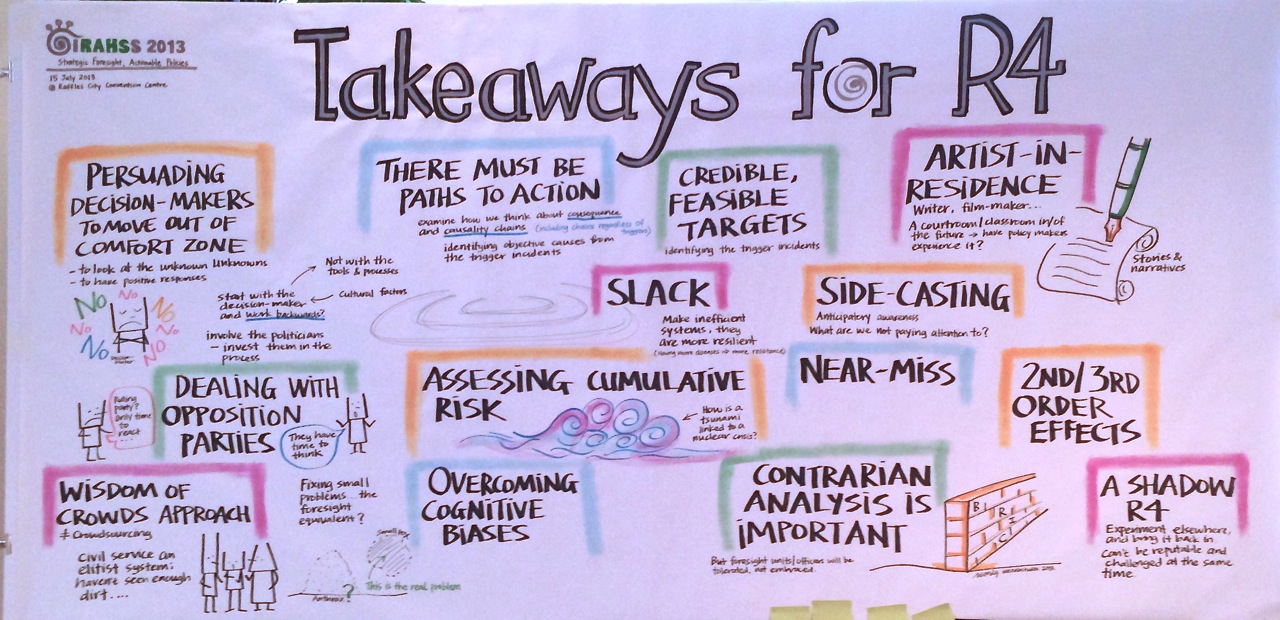 IRAHSS 2013
Strategic Foresight, Actionable Policies
15 July 2013
@ Raffles City Convention Centre
Takeaways for R4
PERSUADING
DECISION-MAKERS
TO MOVE OUT OF
COMFORT ZONE
- to look at the unknown unknowns
- to have positive responses
No No No
No No
No No
start with the
decision-maker
and work backwards?
Not with the
tools & processes
Cultural factors
involve the politicians
- invest them in the
process
THERE MUST BE
PATHS TO ACTION
examine how we think about consequence
and causality chains (including chains regardless of
triggers)
identifying objective causes from
the trigger incidents
CREDIBLE,
FEASIBLE
TARGETS
identifying the trigger incidents
ARTIST-IN-
RESIDENCE
Writer, film-maker...
A courtroom/classroom in/of
the future → have policy makers
experience it?
Stories &
narratives
SLACK
Make inefficient
systems, they
are more resilient
(Having more diseases → more resistance)
SIDE-CASTING
Anticipatory awareness
What are we not paying attention to?
DEALING WITH
OPPOSITION
PARTIES
Ruling
party?
Only time
to
react...
They have
time to
think
ASSESSING CUMULATIVE
RISK
How is a
tsunami
linked to a
nuclear crisis?
NEAR-MISS
2ND/3RD
ORDER
EFFECTS
WISDOM OF
CROWDS APPROACH
≠ Crowdsourcing
Civil service an
elitist system:
haven't seen enough
dirt....
Fixing small
problems... the
foresight
equivalent?
Smallpox
Anthrax?
This is the real problem
OVERCOMING
COGNITIVE
BIASES
CONTRARIAN
ANALYSIS IS
IMPORTANT
But foresight units/officers will be
tolerated, not embraced.
A SHADOW
R4
Experiment elsewhere,
and bring it back in
Can't be reputable and
challenged at the same
time.